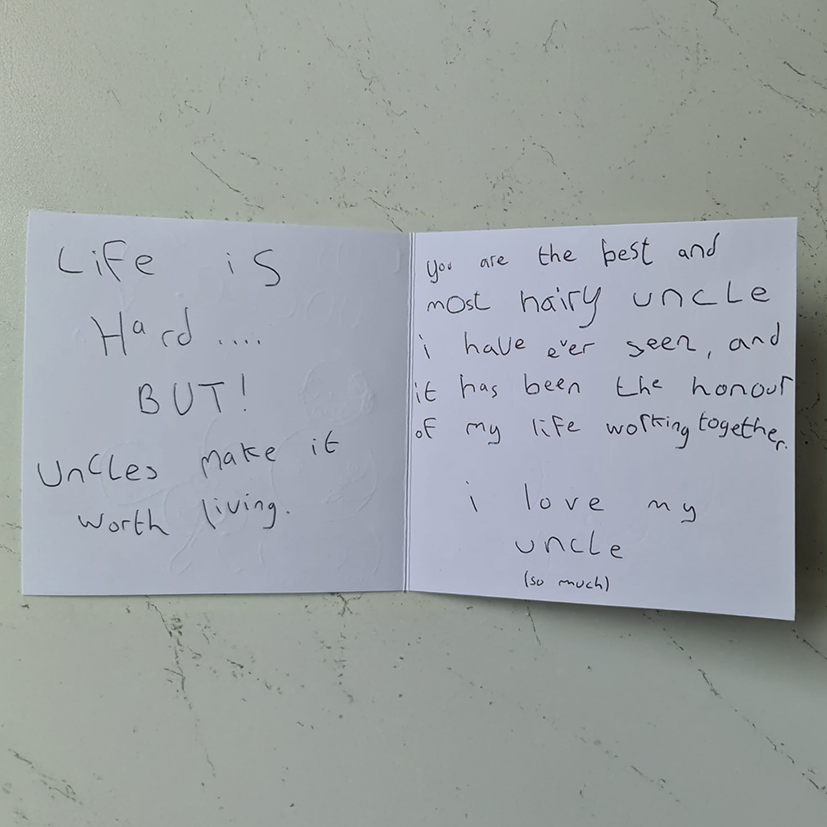 LiFe is
Hard ....
BUT!
UnCLes make it
worth living.
you are the best and
most hairy UNCLE
i have ever seen, and
it has been the honour
of my life working together.
i love my
uncle
(so much)